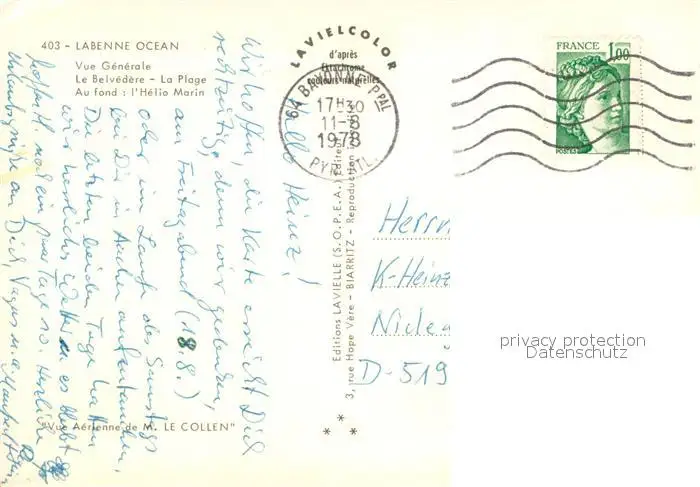 403 - LABENNE OCEAN
Vue Générale
Le Belvédère - La Plage
Au fond : l'Hélio Marin
LAVIELCOLOR
d'après
Ektachrome
couleurs naturelles
64 BAYONNE Ppal
17H30
11-8
1978
FRANCE 1,00
POSTES
Hallo Heinz!
Wir hoffen, die Karte erreicht Dich
rechtzeitig, denn wir gedenken,
am Freitagabend (18.8.)
oder im Laufe des Samstags
bei Dir in Aachen aufzutauchen.
Die letzten beiden Tage hatten
wir herrliches Wetter, es bleibt
hoffentl. noch ein paar Tage so. Herzliche
Urlaubsgrüße an Dich,
Editions LAVIELLE (S.O.P.E.A.) Editeur
3, rue Hope Vère - BIARRITZ - Reproduction
Herrn
K-Heinz
D-519
"Vue Aérienne de M. LE COLLEN"
privacy protection
Datenschutz